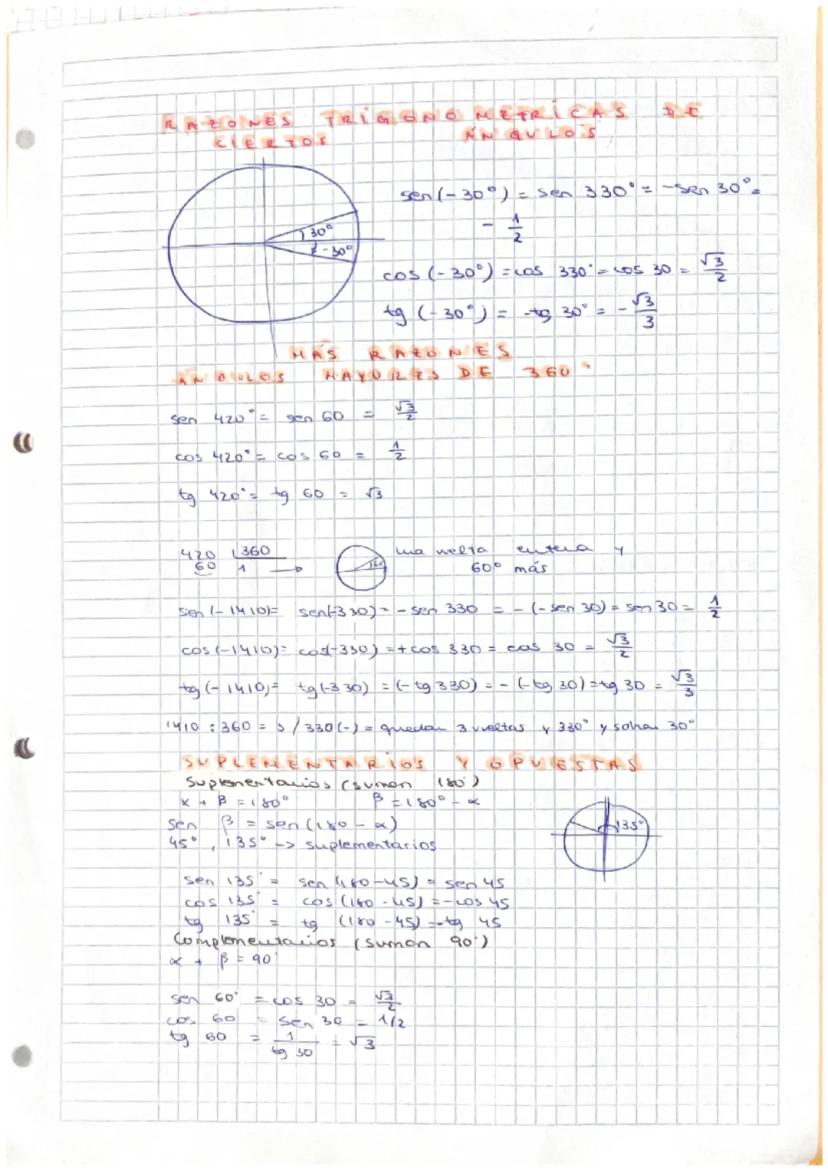 RAZONES TRIGONOMÉTRICAS DE
CIERTOS ÁNGULOS
30°
-30°
sen(-30°) = sen 330° = -sen 30° =
- 1/2
cos (-30°) = cos 330° = cos 30 = √3/2
tg (-30°) = -tg 30° = - √3/3
MÁS RAZONES
ÁNGULOS MAYORES DE 360°
sen 420° = sen 60 = √3/2
cos 420° = cos 60 = 1/2
tg 420° = tg 60 = √3
420 | 360
60 1 → una vuelta entera y
60° más
sen (-1410) = sen(-330) = - sen 330 = - (-sen 30) = sen 30 = 1/2
cos (-1410) = cos(-330) = + cos 330 = cos 30 = √3/2
tg (-1410) = tg (-330) = (-tg 330) = - (-tg 30) = tg 30 = √3/3
1410 : 360 = 3 / 330 (-) = quedan 3 vueltas y 330° y sobran 30°
SUPLEMENTARIOS Y OPUESTAS
Suplementarios (suman 180°)
α + β = 180° β = 180° - α
sen β = sen (180 - α)
45°, 135° -> suplementarios
135°
sen 135° = sen (180-45) = sen 45
cos 135° = cos (180 - 45) = -cos 45
tg 135° = tg (180 - 45) = -tg 45
Complementarios (suman 90°)
α + β = 90°
sen 60° = cos 30 = √3/2
cos 60 = sen 30 = 1/2
tg 60 = 1/tg 30 = √3